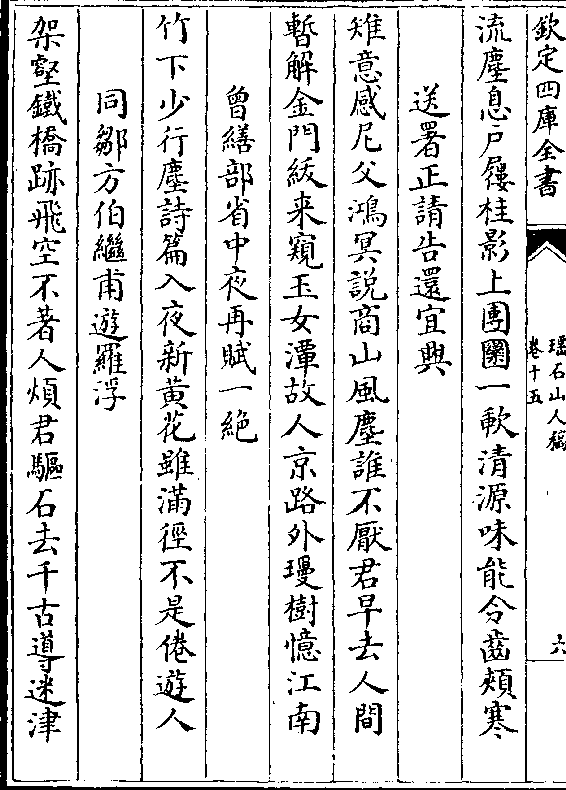 欽定四庫全書
瑶石山人稿
卷十五
六
流塵息户屨桂影上團圞一歃清源味能令齒頰寒
送署正請告還宜興
雉意感尼父鴻冥説商山風塵誰不厭君早去人間
暫解金門紱来窺玉女潭故人京路外璚樹憶江南
曾繕部省中夜再賦一絶
竹下少行塵詩篇入夜新黄花雖滿徑不是倦遊人
同鄒方伯繼甫遊羅浮
架壑鐵橋跡飛空不著人煩君驅石去千古導迷津